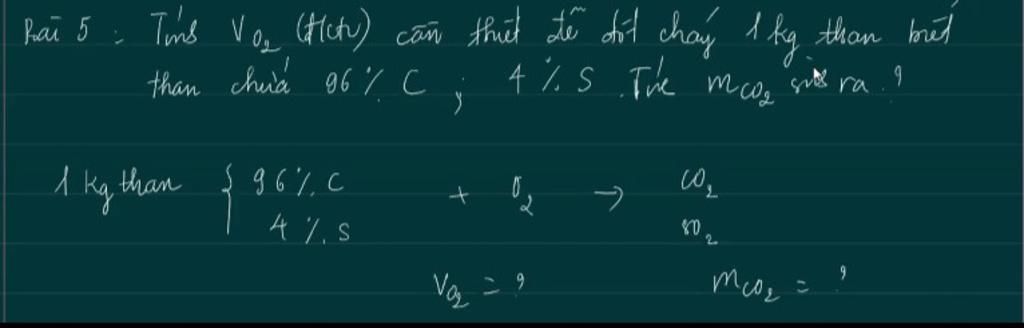 Bài 5 : Tính V O2 (đktc) cần thiết để đốt cháy 1 kg than biết
than chứa 96 % C ; 4 % S . Tính m CO2 sinh ra ?
1 kg than { 96 % C + O2 → CO2
4 % S SO2
V O2 = ? m CO2 = ?